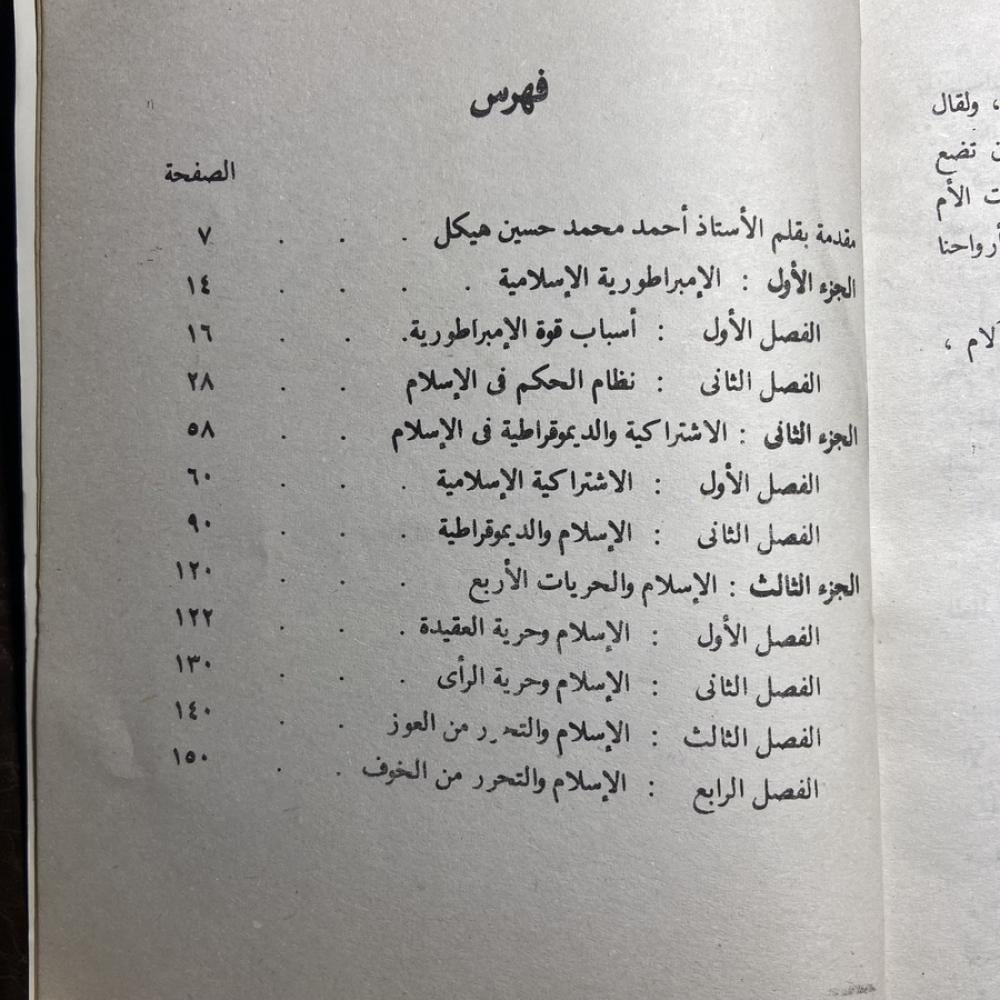 فهرس
الصفحة
مقدمة بقلم الأستاذ أحمد محمد حسين هيكل . . . ٧
الجزء الأول : الإمبراطورية الإسلامية . . . . ١٤
الفصل الأول : أسباب قوة الإمبراطورية. . . ١٦
الفصل الثانى : نظام الحكم فى الإسلام . . ٢٨
الجزء الثانى : الاشتراكية والديموقراطية فى الإسلام . . ٥٨
الفصل الأول : الاشتراكية الإسلامية . . . ٦٠
الفصل الثانى : الإسلام والديموقراطية . . . ٩٠
الجزء الثالث : الإسلام والحريات الأربع . . . ١٢٠
الفصل الأول : الإسلام وحرية العقيدة . . . ١٢٢
الفصل الثانى : الإسلام وحرية الرأى . . . ١٣٠
الفصل الثالث : الإسلام والتحرر من العوز . . ١٤٠
الفصل الرابع : الإسلام والتحرر من الخوف . . ١٥٠
، ولقال
تضع
الأم
أرواحنا
لام ،